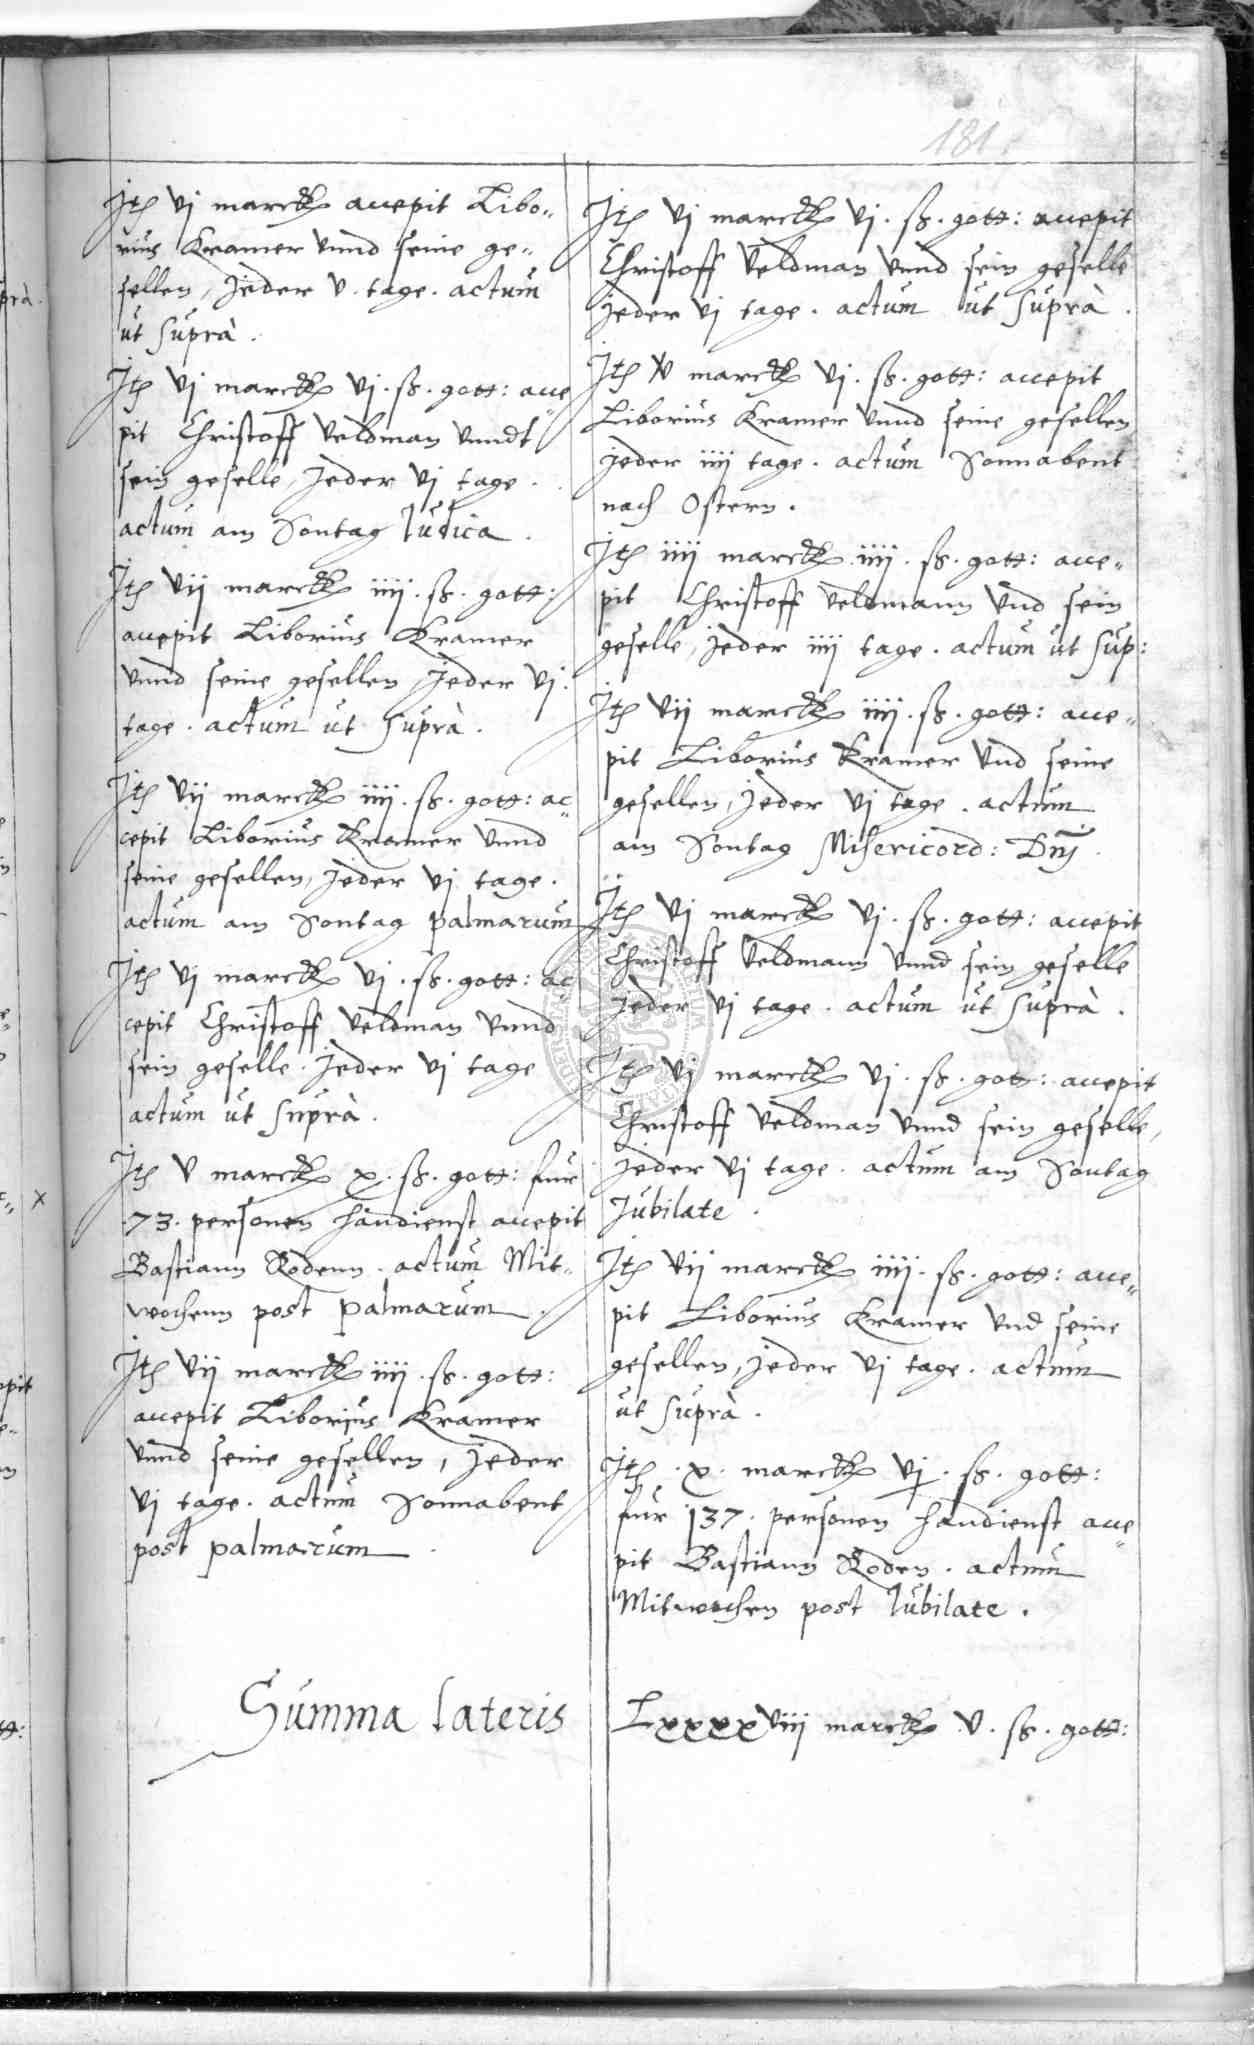 181.
Itē vj marckē accepit Libo„
rius Kramer vnnd seine ge„
sellen, Jeder v. tage. actum
ut suprà.
Itē vj marckē vj. ß. gott: acce„
pit Christoff Veldman vnndt
sein geselle, Jeder vj tage.
actum am Sontag Iudica.
Itē vij marckē iiij. ß. gott:
accepit Liborius Kramer
vnnd seine gesellen, Jeder vj.
tage. actum ut suprà.
Itē vij marckē iiij. ß. gott: ac„
cepit Liborius Kramer vnnd
seine gesellen, Jeder vj tage.
actum am Sontag palmarum
Itē vj marckē vj. ß. gott: ac„
cepit Christoff Veldman vnnd
sein geselle. Jeder vj tage
actum ut suprà.
Itē v marckē x. ß. gott: fur
73. personen handienst accepit
Bastiann Rodenn. actum Mit„
wochenn post palmarum.
Itē vij marckē iiij. ß. gott:
accepit Liborius Kramer
vnnd seine gesellen, Jeder
vj tage. actum Sonnabent
post palmarum.
Itē vj marckē vj. ß. gott: accepit
Christoff Veldman vnnd sein geselle
Jeder vj tage. actum ut suprà.
Itē v marckē vj. ß. gott: accepit
Liborius Kramer vnnd seine gesellen
Jeder iiij tage. actum Sonnabent
nach Ostern.
Itē iiij marckē iiij. ß. gott: acce„
pit Christoff Veldmann vnd sein
geselle, Jeder iiij tage. actum ut sup:
Itē vij marckē iiij. ß. gott: acce„
pit Liborius Kramer vnd seine
gesellen, Jeder vj tage. actum
am Sontag Misericord: Dnj.
Itē vj marckē vj. ß. gott: accepit
Christoff Veldmann vnnd sein geselle
Jeder vj tage. actum ut suprà.
Itē vj marckē vj. ß. gott: accepit
Christoff Veldman vnnd sein geselle,
Jeder vj tage. actum am Sontag
Iubilate.
Itē vij marckē iiij. ß. gott: acce„
pit Liborius Kramer vnd seine
gesellen, Jeder vj tage. actum
ut suprà.
Itē .x. marckē vj. ß. gott:
fur 137. personen handienst acce„
pit Bastiann Roden. actum
Mitwochen post Iubilate.
Summa lateris Lxxxxviij marckē v. ß. gott: